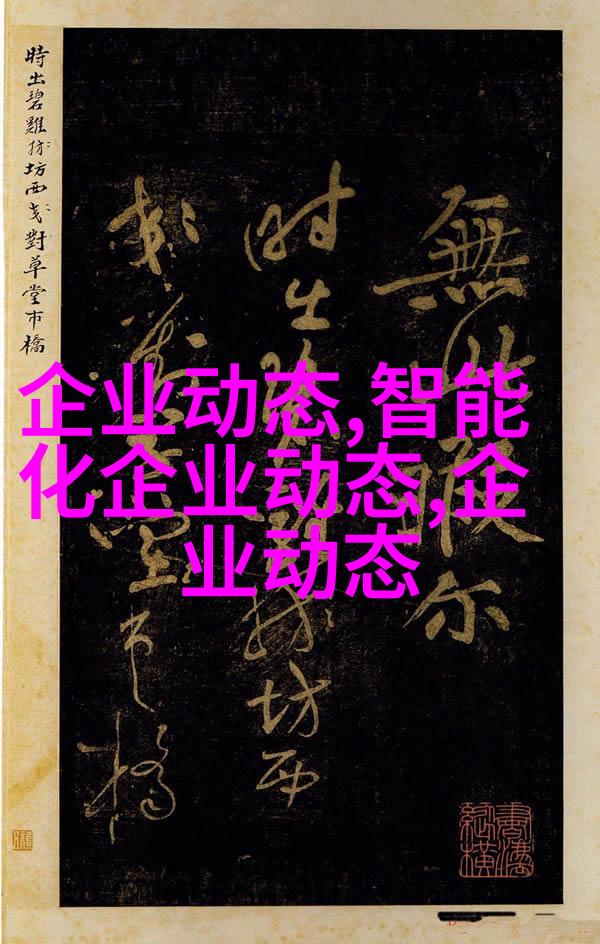 企业动态,智能
化企业动态,企
业动态
無暇尔
時出坊西
對市橋
時出碧雞坊西對草堂市橋